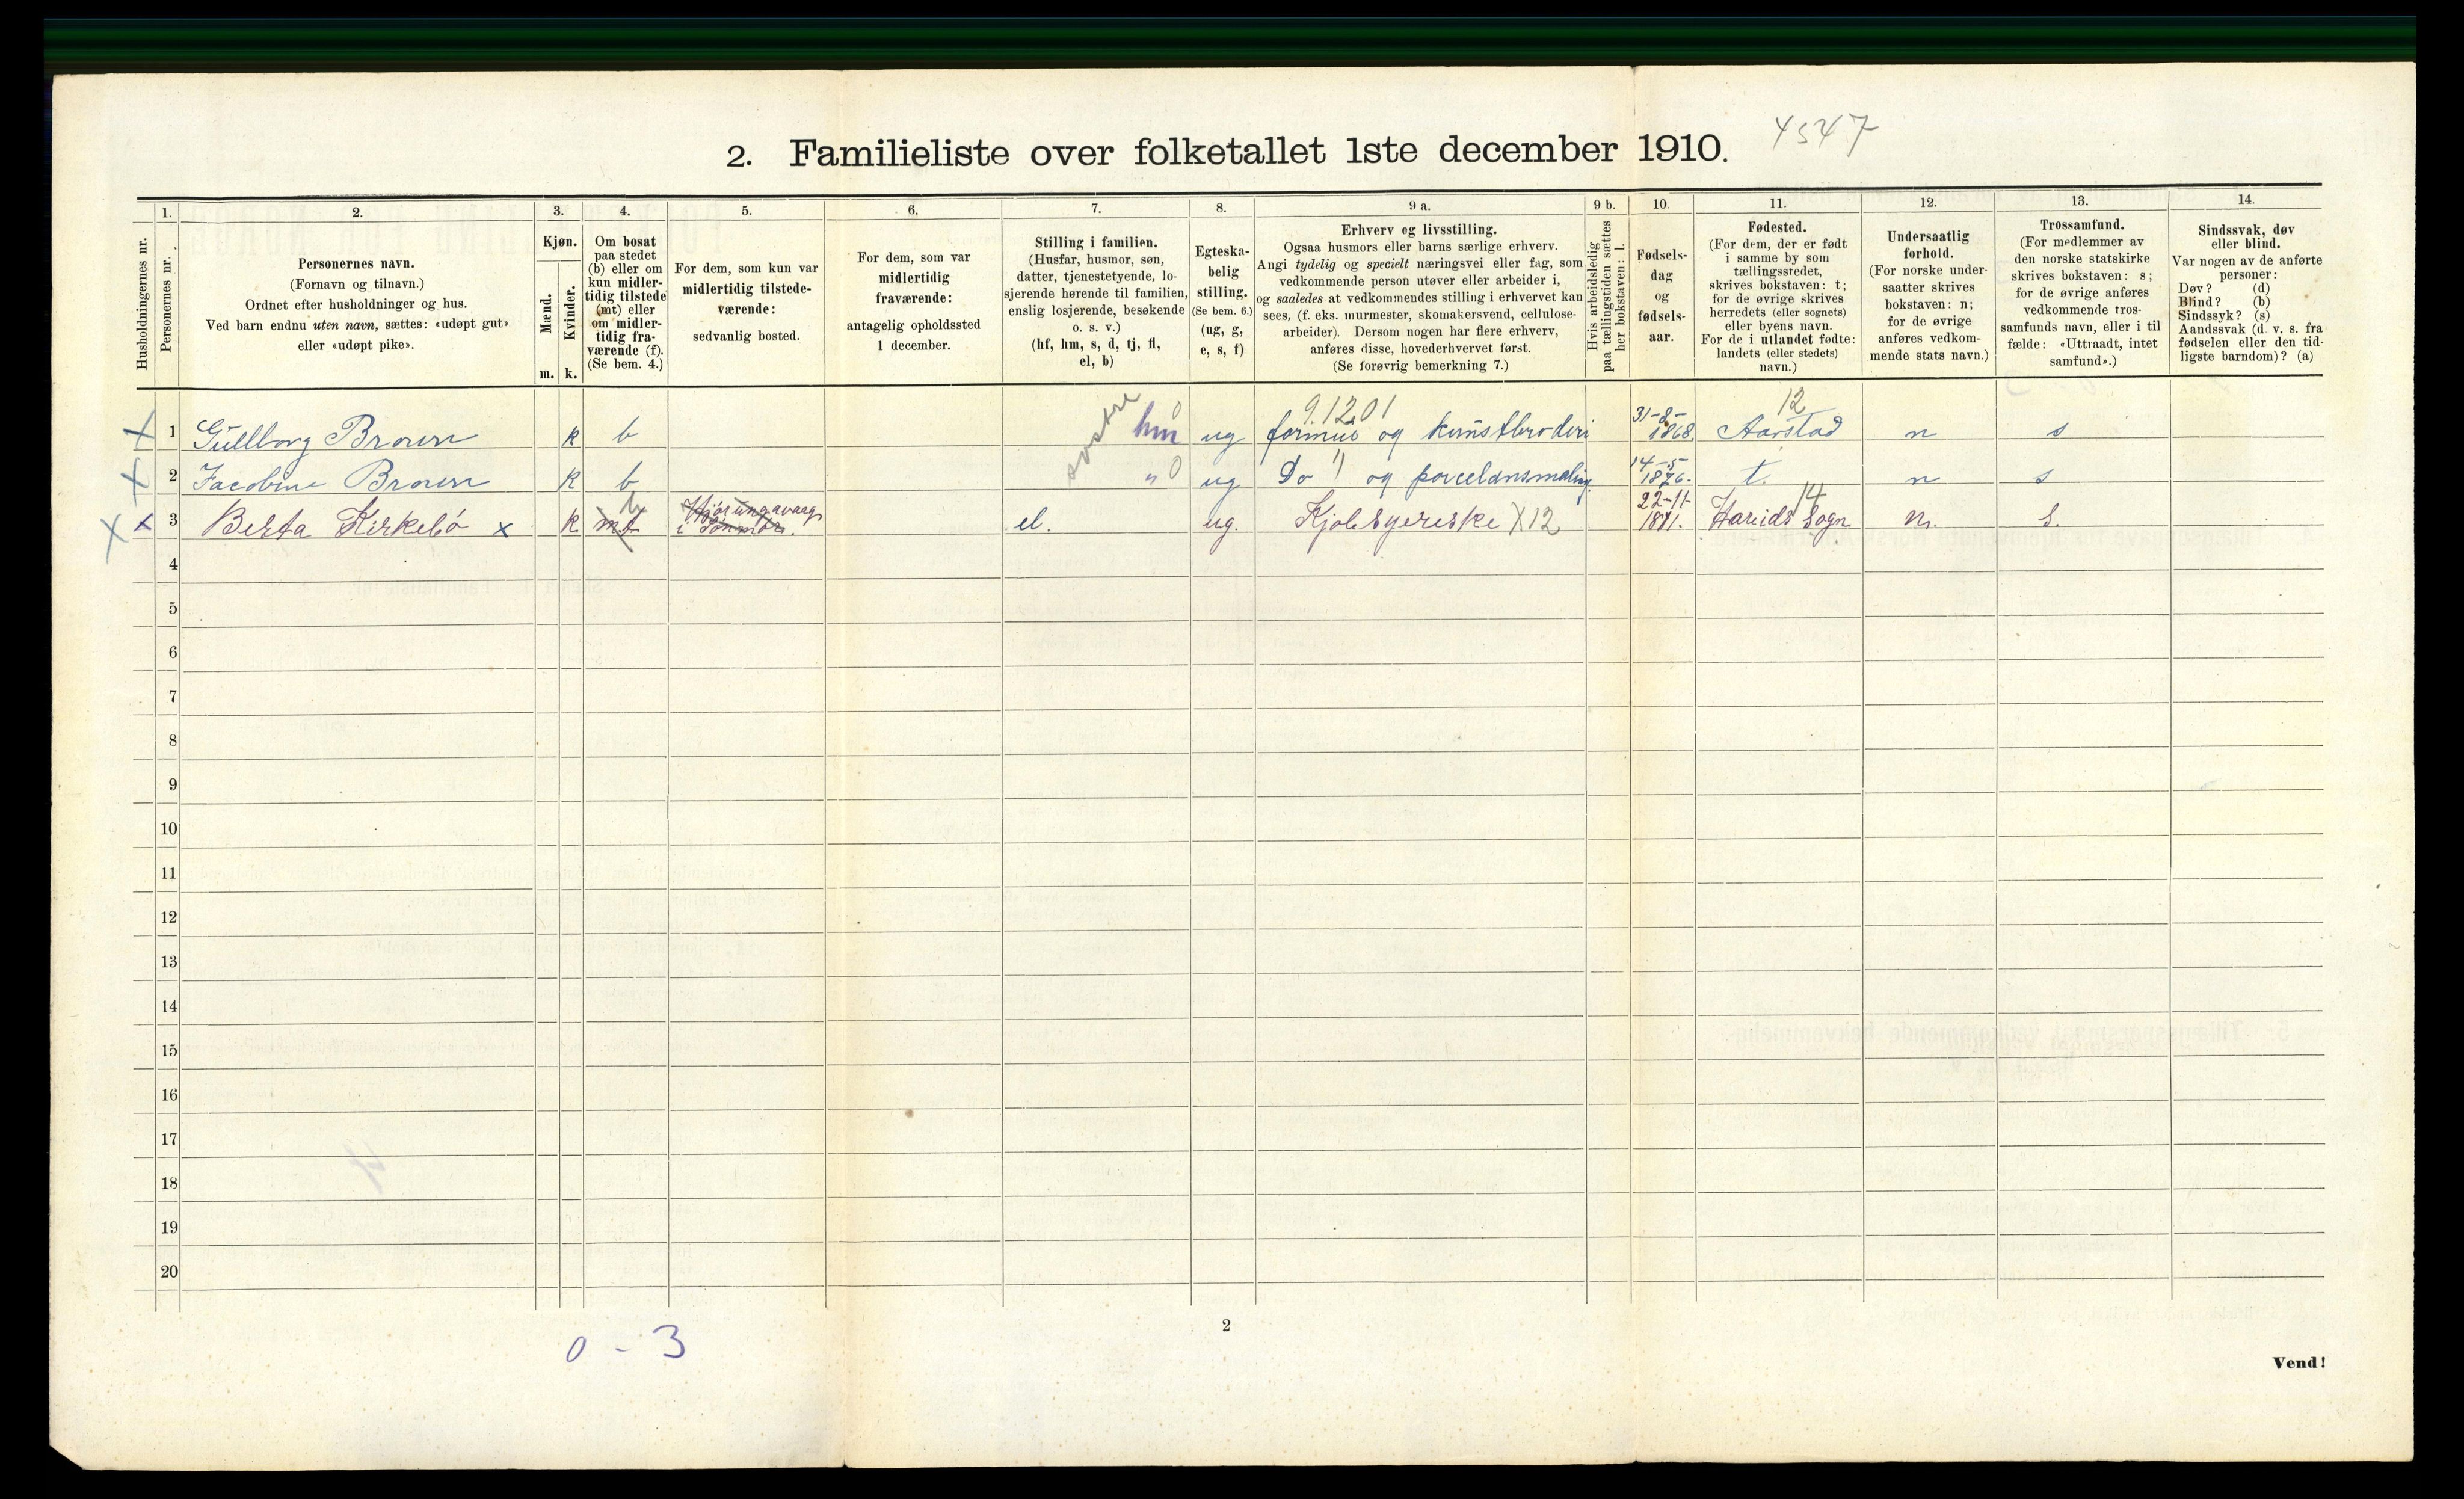 2. Familieliste over folketallet 1ste december 1910. 4547
Husholdningernes nr.
1.
Personernes nr.
2.
Personernes navn.
(Fornavn og tilnavn.)
Ordnet efter husholdninger og hus.
Ved barn endnu uten navn, sættes: «udøpt gut»
eller «udøpt pike».
3.
Kjøn.
Mænd.
Kvinder.
m. k.
4.
Om bosat
paa stedet
(b) eller om
kun midler-
tidig tilstede
(mt) eller
om midler-
tidig fra-
værende (f).
(Se bem. 4.)
5.
For dem, som kun var
midlertidig tilstede-
værende:
sedvanlig bosted.
6.
For dem, som var
midlertidig
fraværende:
antagelig opholdssted
1 december.
7.
Stilling i familien.
(Husfar, husmor, søn,
datter, tjenestetyende, lo-
sjerende hørende til familien,
enslig losjerende, besøkende
o. s. v.)
(hf, hm, s, d, tj, fl,
el, b)
8.
Egteska-
belig
stilling.
(Se bem. 6.)
(ug, g,
e, s, f)
9 a.
Erhverv og livsstilling.
Ogsaa husmors eller barns særlige erhverv.
Angi tydelig og specielt næringsvei eller fag, som
vedkommende person utøver eller arbeider i,
og saaledes at vedkommendes stilling i erhvervet kan
sees, (f. eks. murmester, skomakersvend, cellulose-
arbeider). Dersom nogen har flere erhverv,
anføres disse, hovederhvervet først.
(Se forøvrig bemerkning 7.)
9 b.
Hvis arbeidsledig
paa tællingstiden sættes
her bokstaven: l.
10.
Fødsels-
dag
og
fødsels-
aar.
11.
Fødested.
(For dem, der er født
i samme by som
tællingsstedet,
skrives bokstaven: t;
for de øvrige skrives
herredets (eller sognets)
eller byens navn.
For de i utlandet fødte:
landets (eller stedets)
navn.)
12.
Undersaatlig
forhold.
(For norske under-
saatter skrives
bokstaven: n;
for de øvrige
anføres vedkom-
mende stats navn.)
13.
Trossamfund.
(For medlemmer av
den norske statskirke
skrives bokstaven: s;
for de øvrige anføres
vedkommende tros-
samfunds navn, eller i til
fælde: «Uttraadt, intet
samfund».)
14.
Sindssvak, døv
eller blind.
Var nogen av de anførte
personer:
Døv? (d)
Blind? (b)
Sindssyk? (s)
Aandssvak (d. v. s. fra
fødselen eller den tid-
ligste barndom)? (a)
søstre 0 9.1201 31-8- 12
X 1 Gullborg Brown k b hm ug formue og kunstbroderi 1868. Aarstad n s
14-5-
X 2 Jacobine Brown k b " 0 ug Do " og porcelænsmaling. 1876. t. n s
b Hjørungavaag 22-11- 14
X x 3 Berta Kirkebø x k mt i Søndmør. el. ug. Kjolesyerske X12 1871. Hareids Sogn n. s.
4
5
6
7
8
9
10
11
12
13
14
15
16
17
18
19
20
0 - 3
2
Vend!